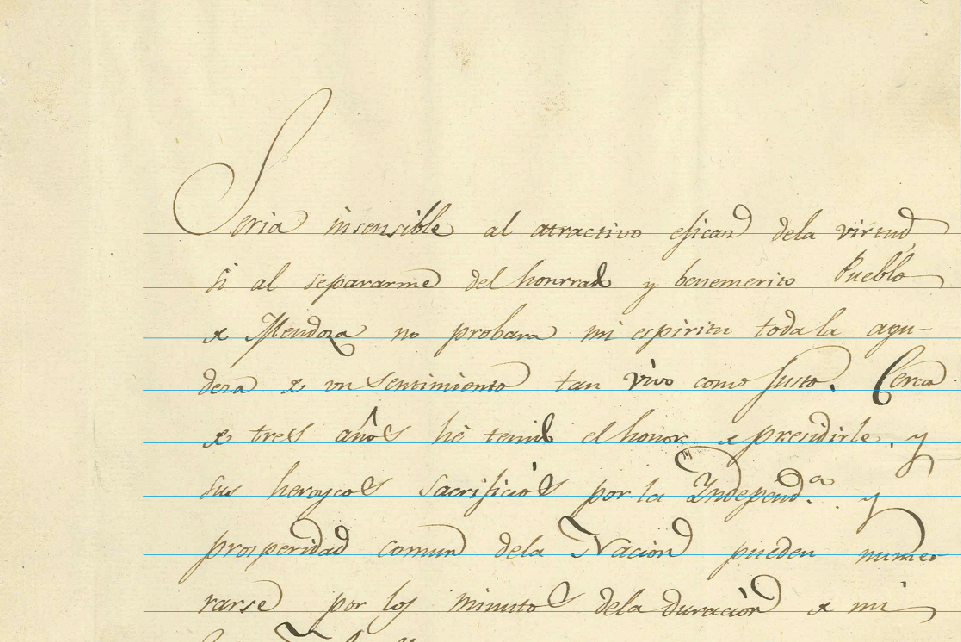 Seria insensible al atractivo eficaz dela virtud,
si al separarme del honrrado y benemerito Pueblo
de Mendoza no probara mi espiritu toda la agu-
deza de un sentimiento tan vivo como justo. Cerca
de tres años hé tenido el honor de presidirle, y
sus heroycos sacrificios por la Independ.a y
prosperidad comun dela Nacion pueden nume-
rarse por los minutos dela duración de mi